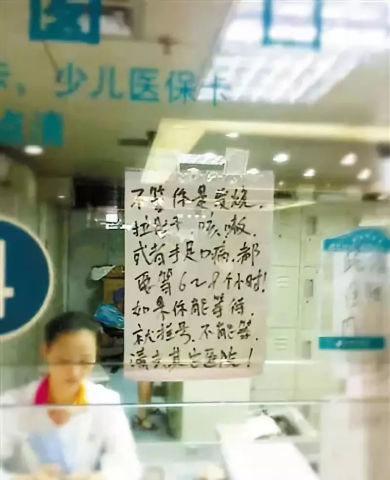 、少儿医保卡
点清
4
不管你是发烧、
拉肚子、咳嗽、
或者手足口病,都
需等6~8个小时!
如果你能等待,
就挂号,不能等,
请去其它医院!